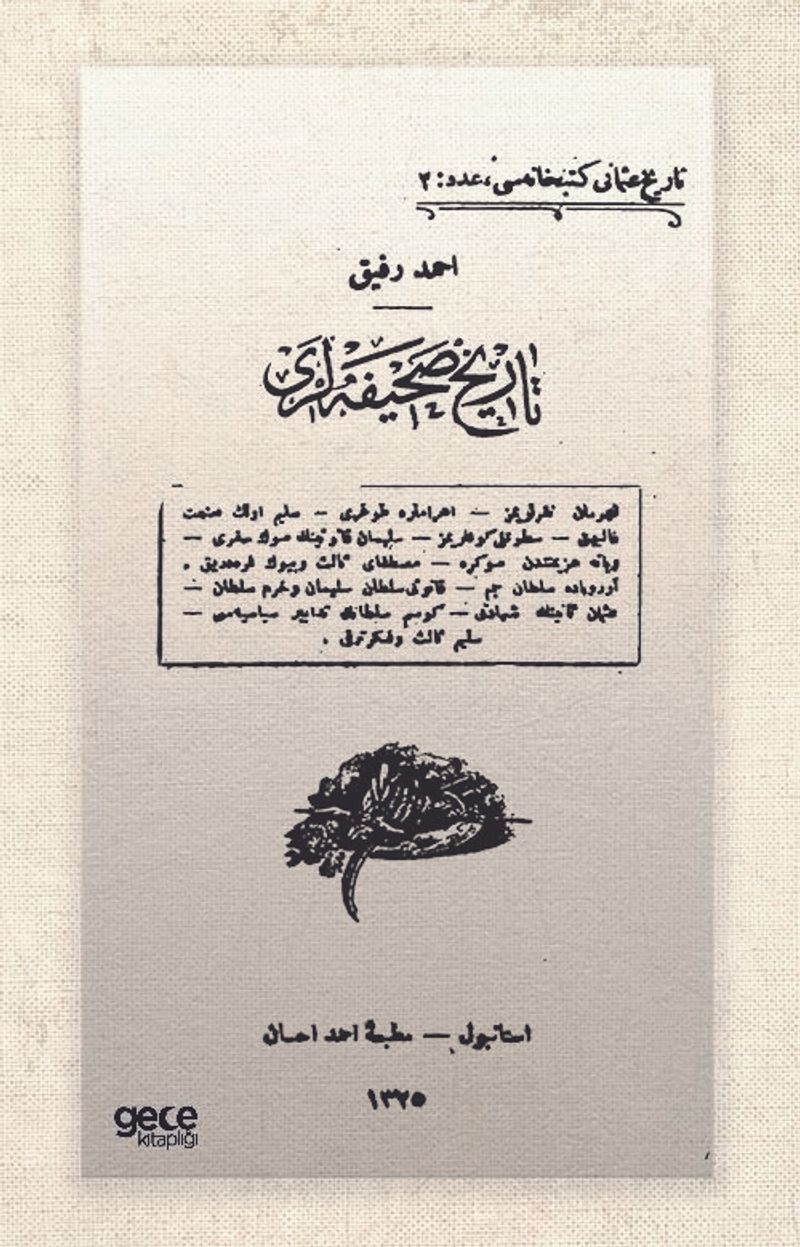 تاریخ عثمانی کتبخانه‌سی، عدد: ۲
احمد رفیق
تاریخ صحیفه‌لری
قهرمان نفرلریمز — اهرامله طوغری — سلیم اولك
— سلیمان قانونینك صوك سفری —
ویانه هزیمتندن صوكره — مصطفای ثالث وبیوك فره‌دریق .
آوروپاده سلطان جم — قانونی سلطان سلیمان وخرم سلطان —
عثمان ثانینك شهادتی — كوسم سلطانك تدابیر سیاسیه‌سی —
سلیم ثالث وفكر ترقی .
استانبول — مطبعهٔ احمد احسان
١٣٢٥
gece
kitaplığı